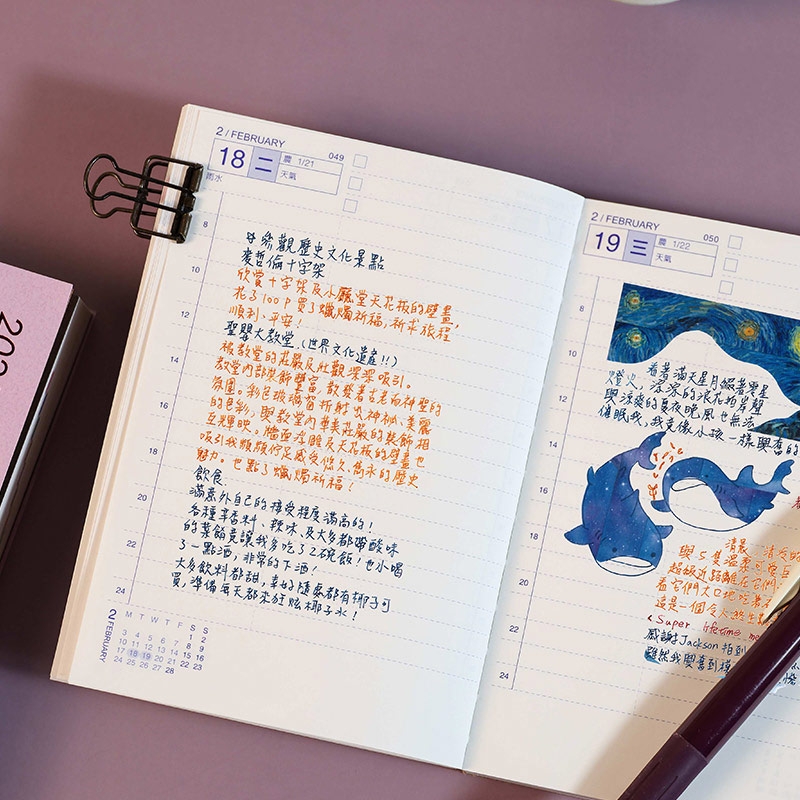 2 / FEBRUARY
18 二 農 1/21 049
天氣
雨水
8
10
12
14
16
18
20
22
24
參觀歷史文化景點
麥哲倫十字架
欣賞十字架及小廳堂天花板的壁畫,
花了100P買了蠟燭祈福,祈求旅程
順利、平安!
聖嬰大教堂.(世界文化遺產!!)
被教堂的莊嚴及壯觀深深吸引。
教堂內部裝飾豐富,散發著古老而神聖的
氛圍。彩色玻璃窗折射出神祕、美麗
的色彩,與教堂內華美莊嚴的裝飾相
互輝映。牆面浮雕及天花板的壁畫也
吸引我頻頻佇足感受悠久雋永的歷史
魅力。也點了蠟燭祈福!
飲食
滿意外自己的接受程度滿高的!
各種辛香料、辣味、及大多都帶酸味
的菜餚竟讓我多吃了2碗飯!也小喝
了一點酒,非常的下酒!
大多飲料都甜,幸好隨處都有椰子可
買,準備每天都來狂炫椰子水!
2 FEBRUARY
M T W T F S S
1 2
3 4 5 6 7 8 9
10 11 12 13 14 15 16
17 18 19 20 21 22 23
24 25 26 27 28
2 / FEBRUARY
19 三 農 1/22 050
天氣
8
10
12
14
16
18
20
22
24
看著滿天星月綴著零星
燈火,浮浮的浪花拍岸聲
與涼爽的夏夜晚風也無法
催眠我,我竟像小孩一樣興奮的
清晨
與5隻溫柔可愛巨
超級近距離在它們
看它們大口地吃著
這是一個令人終生
<Super lifetime me
感謝Jackson拍到
雖然我興奮到
202